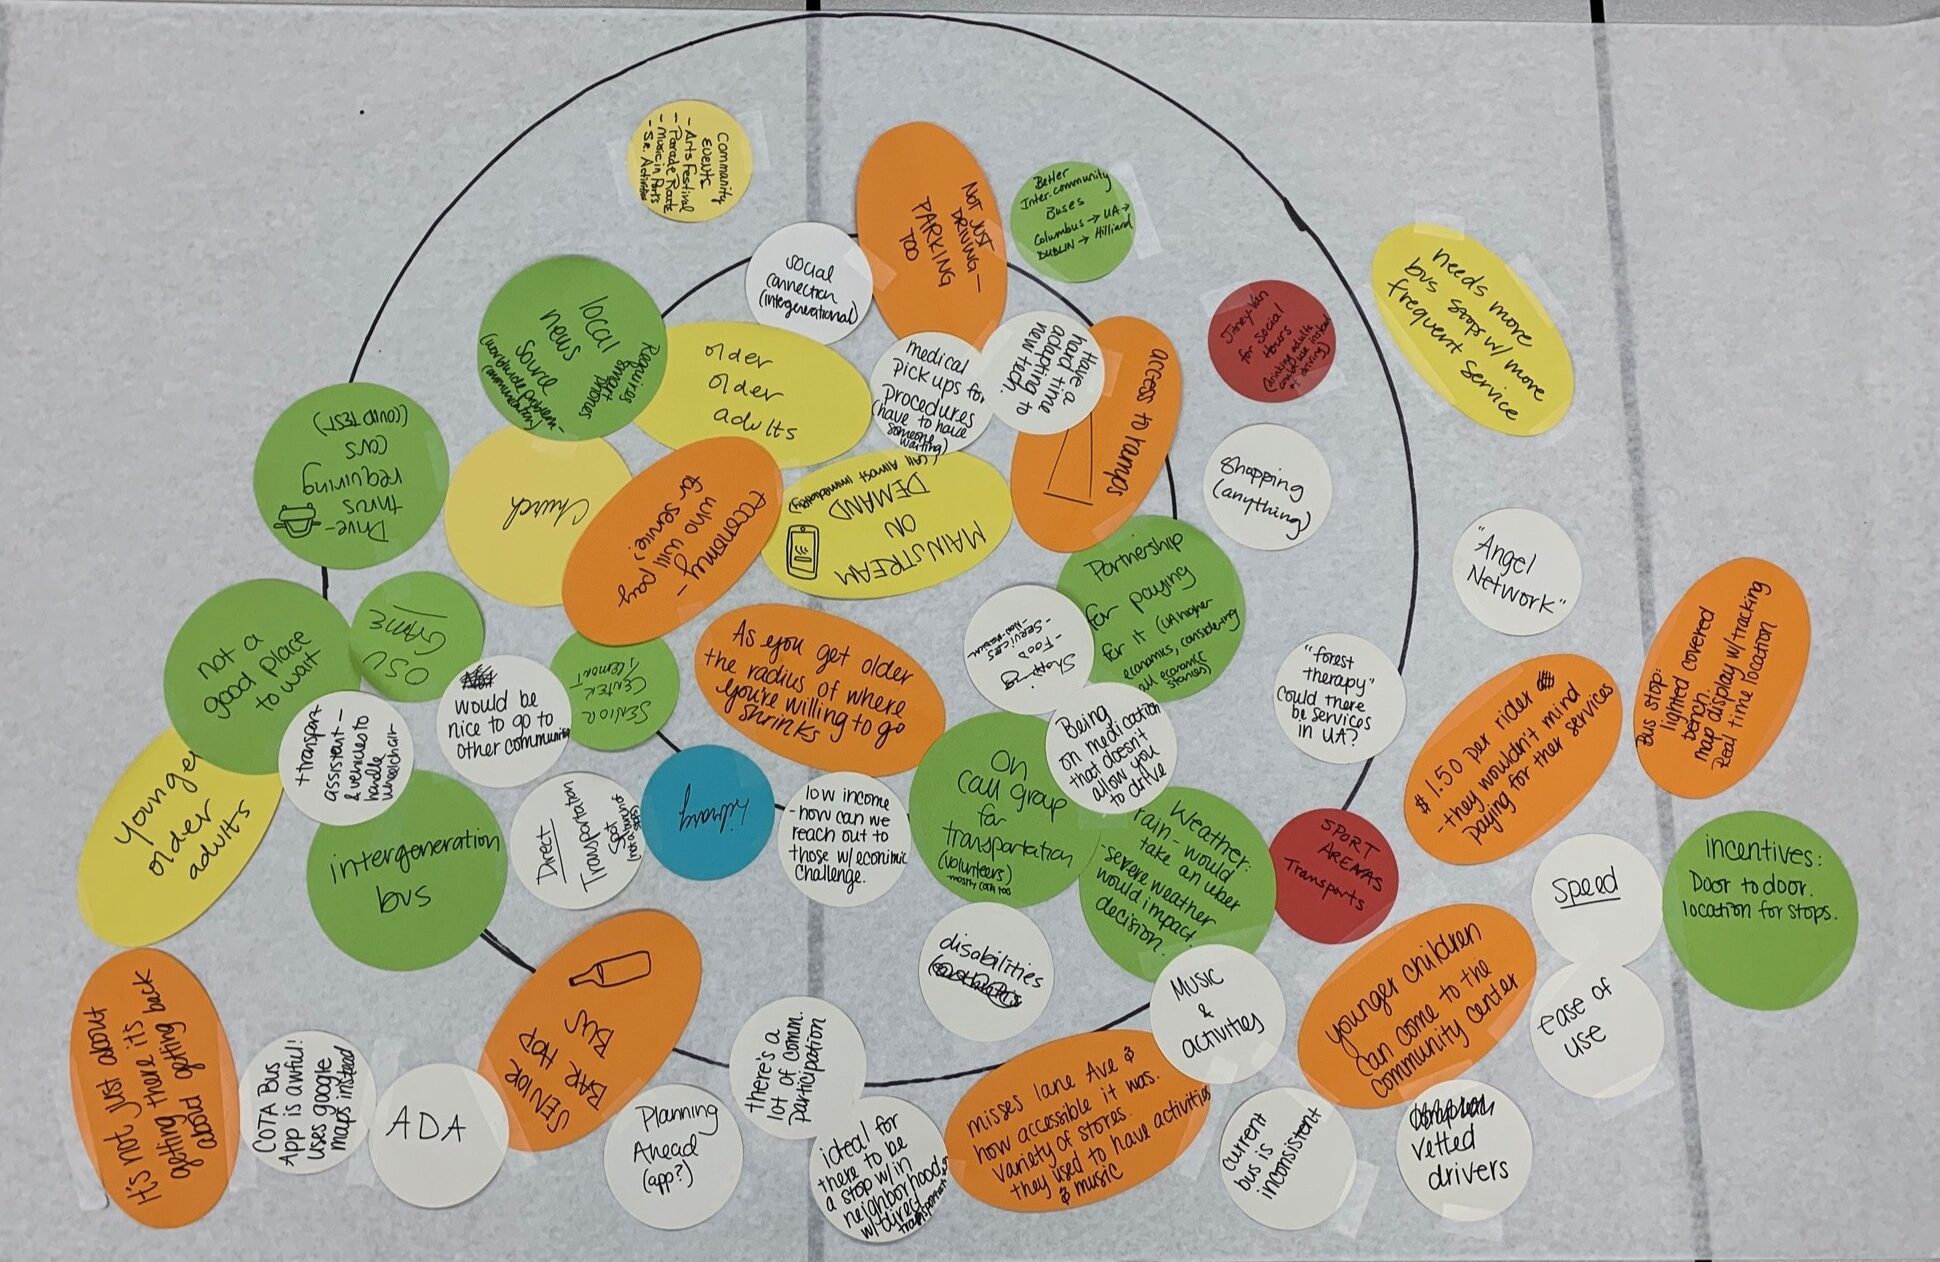 Community
EVENTS
- Arts Festival
- Parade Route
- Music in Parks
- S.R. Activities
NOT JUST
DRIVING—
PARKING
TOO
Better
Inter.community
Buses
Columbus → UA →
DUBLIN → Hilliard
social
connection
(intergenerational)
local
news
source
(worldwide problem—
communication)
Requires
smart
phones
older
older
adults
medical
pick ups for
procedures
(have to have
someone
waiting)
Have a
hard time
adapting to
new tech.
access to ramps
Jitney-Van
for Social
Hours
(drinking adults
could use instead
of driving)
needs more
bus stops w/ more
frequent service
Drive-
thrus
requiring
cars
(COVID TEST)
Church
Economy—
who will pay
for service?
MAINSTREAM
ON
DEMAND
(call Almost immediately)
shopping
(anything)
"Angel
Network"
Partnership
for paying
for it (UA higher
economics, considering
all economic
stances)
Shopping
- FOOD
- SERVICES
not a
good place
to wait
OSU
GAME
would be
nice to go to
other communities
SENIOR
CENTER-
As you get older
the radius of where
you're willing to go
shrinks
Being
on medication
that doesn't
allow you
to drive
"forest
therapy"
could there
be services
in UA?
$1.50 per rider
- they wouldn't mind
paying for their services
Bus stop:
lighted covered
bench.
map display w/ tracking
Real time location
younger
older
adults
transport
assistent—
& vehicles to
handle
wheelchair
intergeneration
bus
Direct
Transportation
Spot
Library
low income
- how can we
reach out to
those w/ econimic
challenge.
On
call group
for
transportation
(volunteers)
Weather:
rain - would
take an uber
- severe weather
would impact
decision.
SPORT
AREAS
Transports
speed
incentives:
Door to door.
location for stops.
disabilities
SENIOR
BAR HOP
BUS
MUSIC
&
activities
younger children
can come to the
community center
ease of
use
It's not just about
getting there it's
about getting back
COTA Bus
App is awful!
uses google
maps instead
ADA
Planning
Ahead
(app?)
there's a
lot of comm.
participation
ideal for
there to be
a stop w/in
neighborhood
w/ direct
transportation
misses lane Ave &
how accessible it was.
Variety of stores.
they used to have activities
& music
current
bus is
inconsistent
vetted
drivers